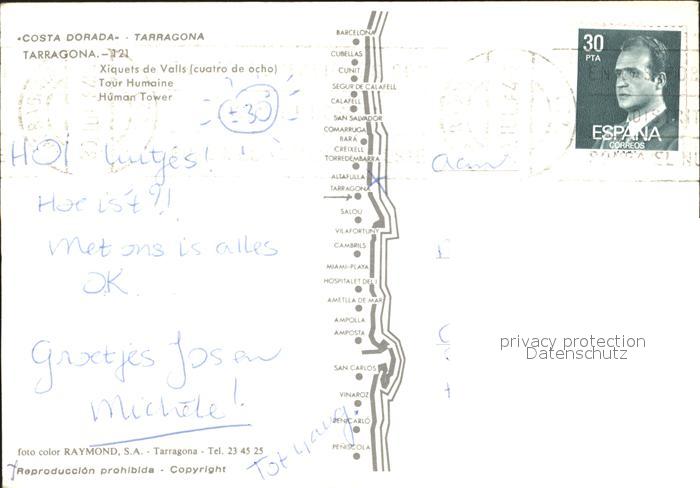 «COSTA DORADA» - TARRAGONA
TARRAGONA.—121
Xiquets de Valls (cuatro de ocho)
Tour Humaine
Húman Tower
± 30°
HOI luitjes!
Hoe is't?!
Met ons is alles
OK.
Groetjes Jos en
Michèle!
Tot gauw.
foto color RAYMOND, S.A. - Tarragona - Tel. 23 45 25
Reproducción prohibida - Copyright
BARCELONA
CUBELLAS
CUNIT
SEGUR DE CALAFELL
CALAFELL
SAN SALVADOR
COMARRUGA
BARÁ
CREIXELL
TORREDEMBARRA
ALTAFULLA
TARRAGONA
SALOU
VILAFORTUNY
CAMBRILS
MIAMI-PLAYA
HOSPITALET DEL I
AMETLLA DE MAR
AMPOLLA
AMPOSTA
SAN CARLOS
VINAROZ
BENICARLÓ
PEÑISCOLA
30
PTA
ESPAÑA
CORREOS
Aan
privacy protection
Datenschutz